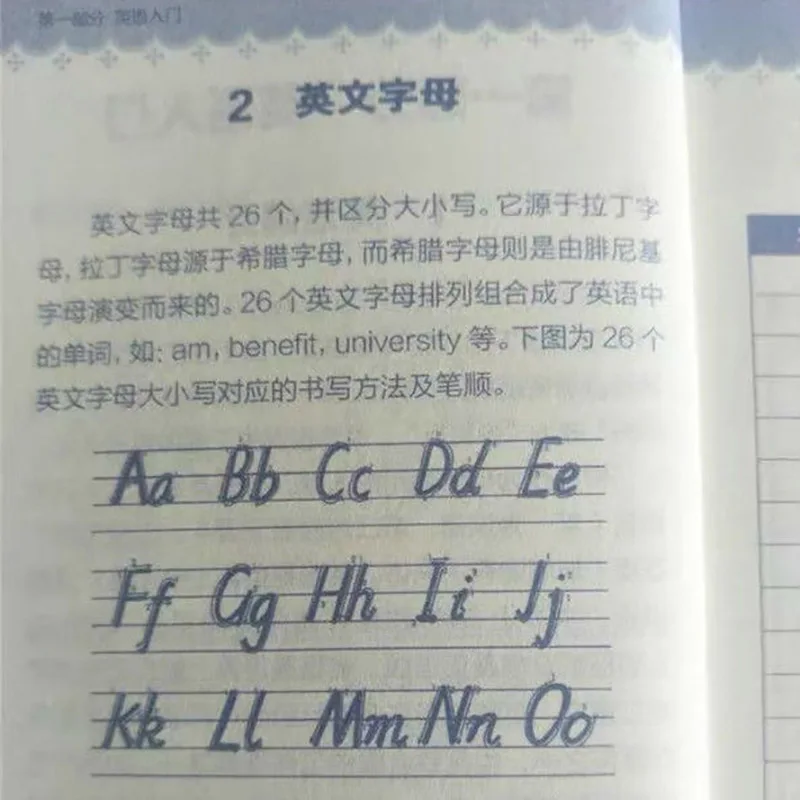 第一部分 英语入门
2 英文字母
英文字母共 26 个, 并区分大小写。它源于拉丁字
母, 拉丁字母源于希腊字母, 而希腊字母则是由腓尼基
字母演变而来的。26 个英文字母排列组合成了英语中
的单词, 如: am, benefit, university 等。下图为 26 个
英文字母大小写对应的书写方法及笔顺。
Aa Bb Cc Dd Ee
Ff Gg Hh Ii Jj
Kk Ll Mm Nn Oo